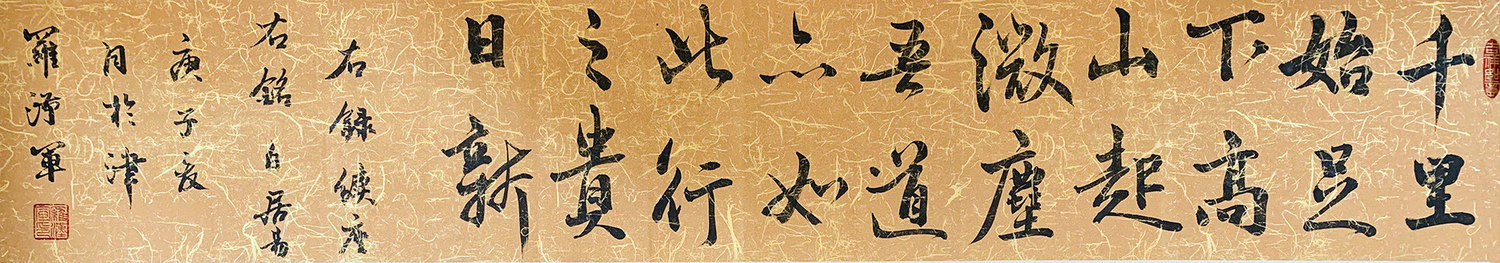 千里
始足
下高
山起
微塵
吾道
亦如
此行
之貴
日新
右録續座
右銘白居易
庚子夏
月於津
羅軍